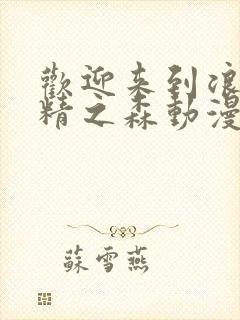 歡迎来到浪
精之森動漫
蘇雪燕